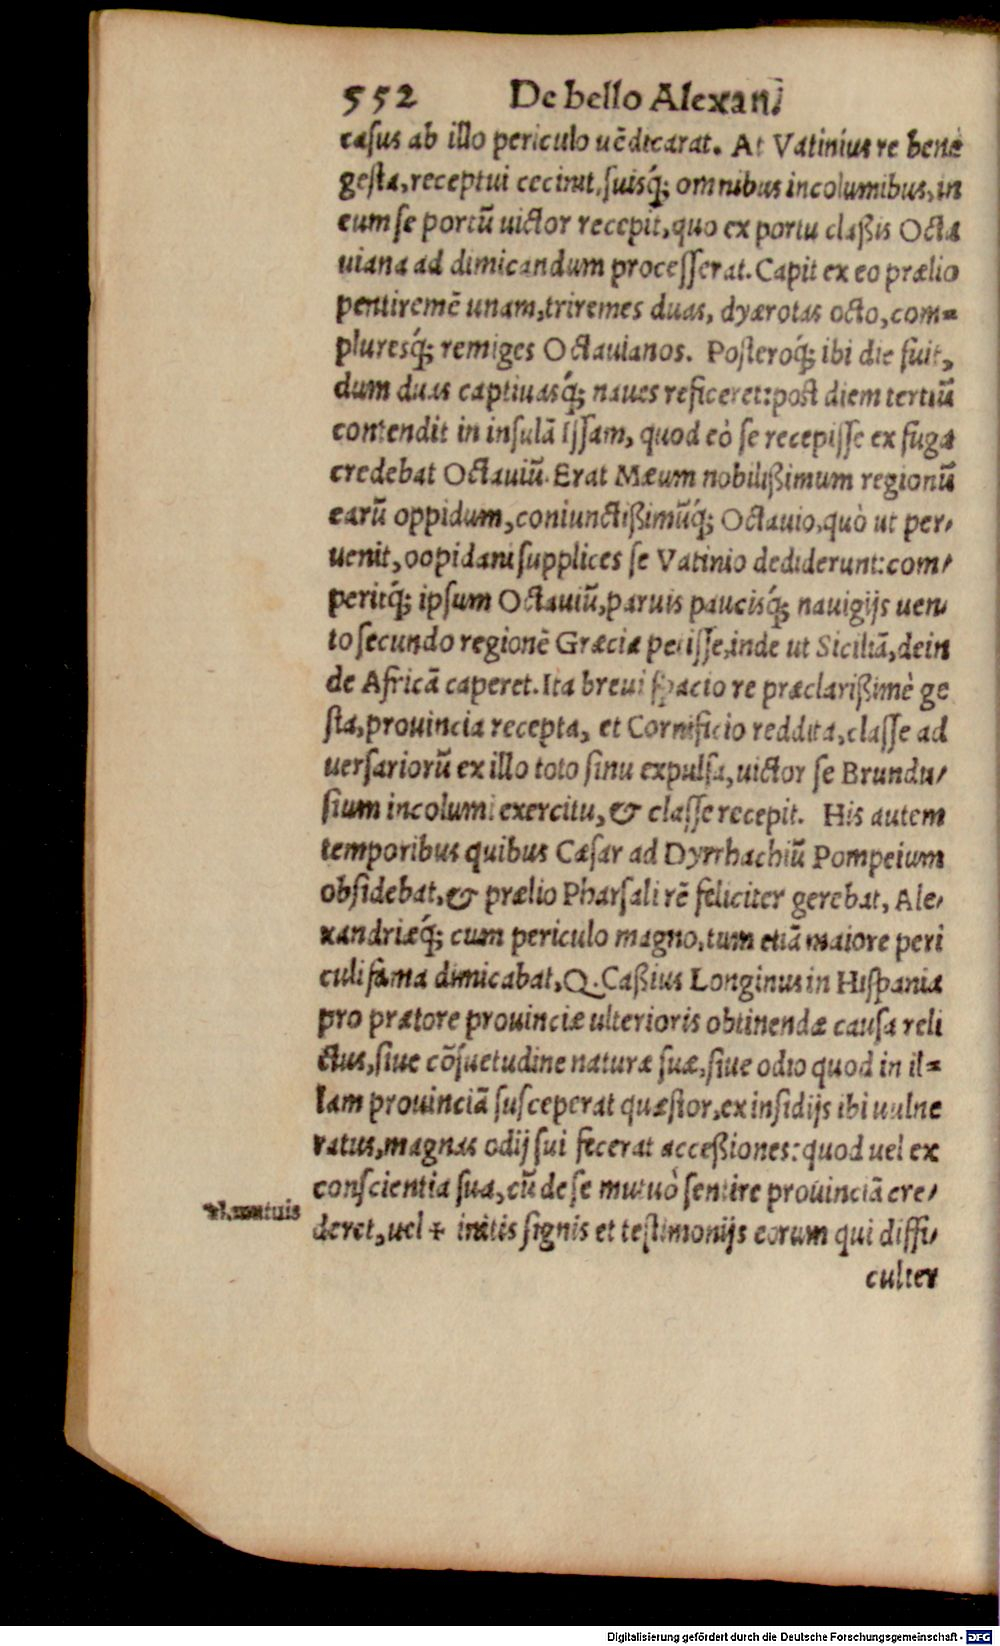 552 De bello Alexan.
casus ab illo periculo uẽdicarat. At Vatinius re bene
gesta, receptui cecinit, suisq́; omnibus incolumibus, in
eum se portũ uictor recepit, quo ex portu claßis Octa
uiana ad dimicandum processerat. Capit ex eo prælio
pentiremẽ unam, triremes duas, dyærotas octo, com=
pluresq́; remiges Octauianos. Posteroq́; ibi die fuit,
dum duas captiuasq́; naues reficeret: post diem tertiũ
contendit in insulã Issam, quod eò se recepisse ex fuga
credebat Octauiũ. Erat Mæum nobilißimum regionũ
earũ oppidum, coniunctißimũq́; Octauio, quò ut per,
uenit, oopidani supplices se Vatinio dediderunt: com,
peritq́; ipsum Octauiũ, paruis paucisq́; nauigijs uen,
to secundo regionẽ Græciæ petisse, inde ut Siciliã, dein
de Africã caperet. Ita breui spacio re præclarißimè ge
sta, prouincia recepta, et Cornificio reddita, classe ad
uersariorũ ex illo toto sinu expulsa, uictor se Brundu,
sium incolumi exercitu, & classe recepit. His autem
temporibus quibus Cæsar ad Dyrrhachiũ Pompeium
obsidebat, & prælio Pharsali rẽ feliciter gerebat, Ale,
xandriæq́; cum periculo magno, tum etiã maiore peri
culi fama dimicabat, Q. Caßius Longinus in Hispania
pro prætore prouinciæ ulterioris obtinendæ causa reli
ctus, siue cõsuetudine naturæ suæ, siue odio quod in il=
lam prouinciã susceperat quæstor, ex insidijs ibi uulne
ratus, magnas odij sui fecerat acceßiones: quod uel ex
conscientia sua, cũ de se mutuò sentire prouinciã cre,
al. mutuis
deret, uel + initis signis et testimonijs eorum qui diffi,
culter
Digitalisierung gefördert durch die Deutsche Forschungsgemeinschaft - DFG